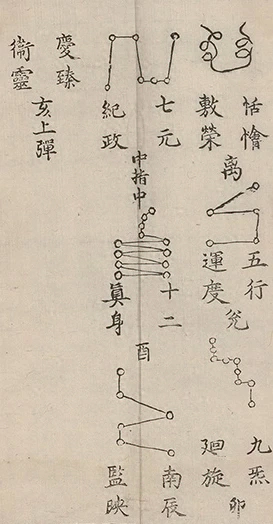 恬憺
敷榮
离
五行
運度
兊
九炁
廻旋
卯
七元
紀政
中指中
十二
眞身
酉
南辰
監映
慶臻
衛靈
亥上彈